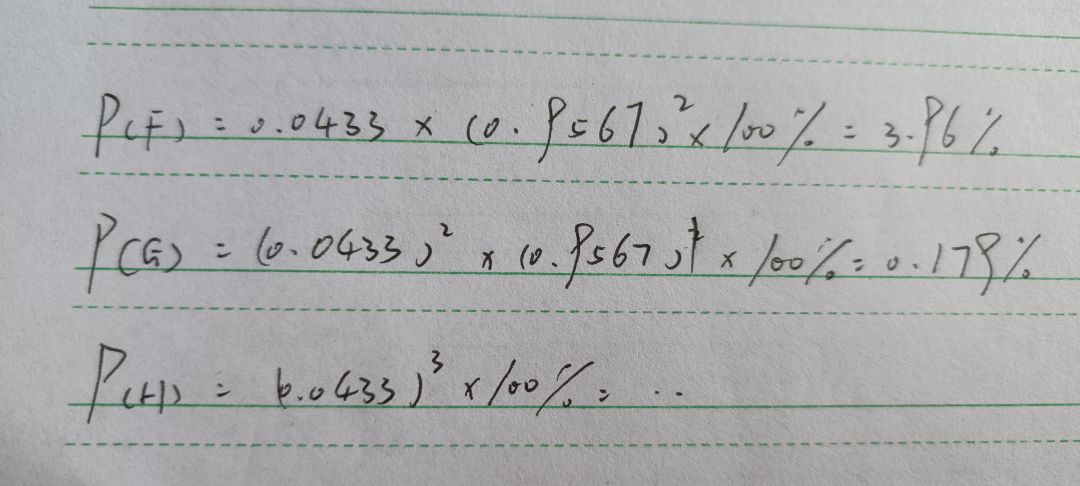 P(F) = 0.0433 × (0.9567)² × 100% = 3.96%
P(G) = (0.0433)² × (0.9567)¹ × 100% = 0.179%
P(H) = (0.0433)³ × 100% = ..